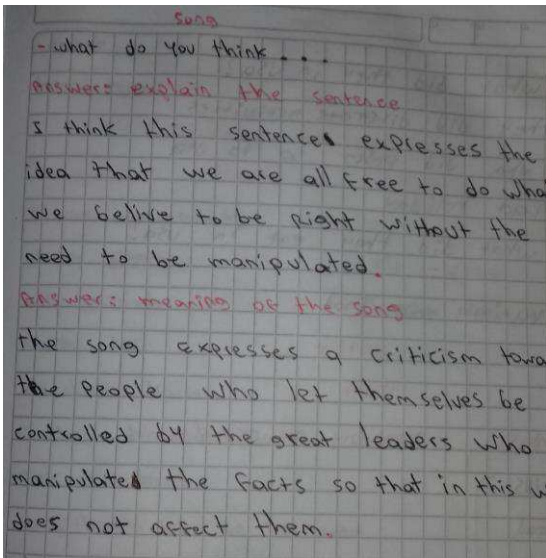 Song
- what do you think ...
Answers explain the sentence
I think this sentences expresses the
idea that we are all free to do wha
we belive to be right without the
need to be manipulated.
Answers meaning of the song
the song expresses a criticism towa
the people who let themselves be
controlled by the great leaders who
manipulated the facts so that in this w
does not affect them.